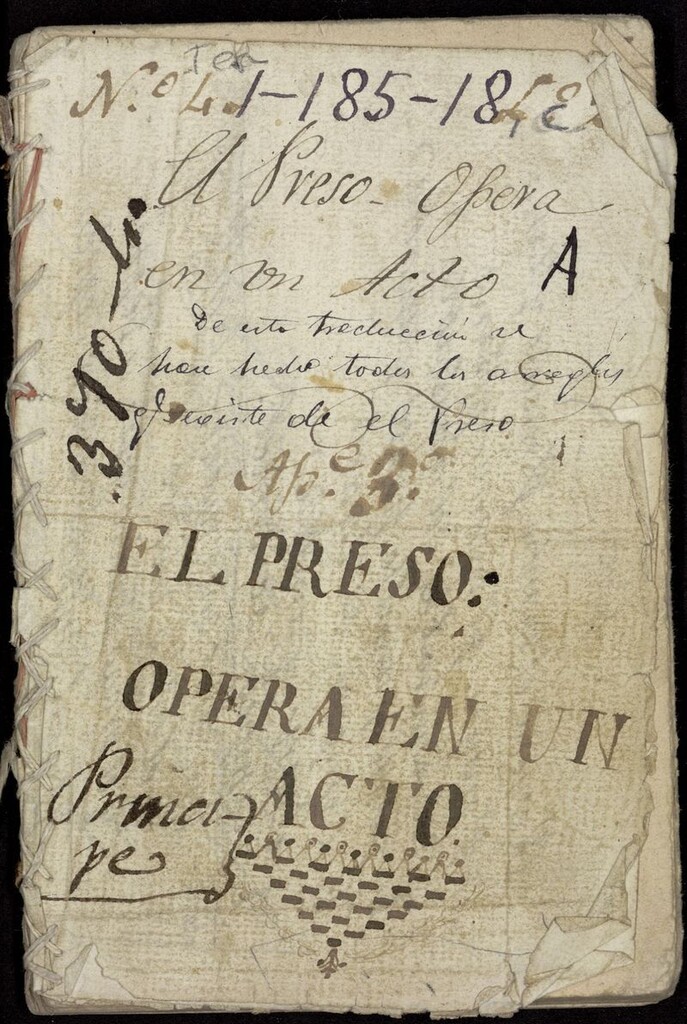 Tea
N.º 4
1-185-18
El Preso - Opera
en un Acto
A
De esta traduccion se
han hecho todos los arreglos
qe. existe de el Preso
370
Ap.e 3.º
EL PRESO:
OPERA EN UN
ACTO
Princi
pe